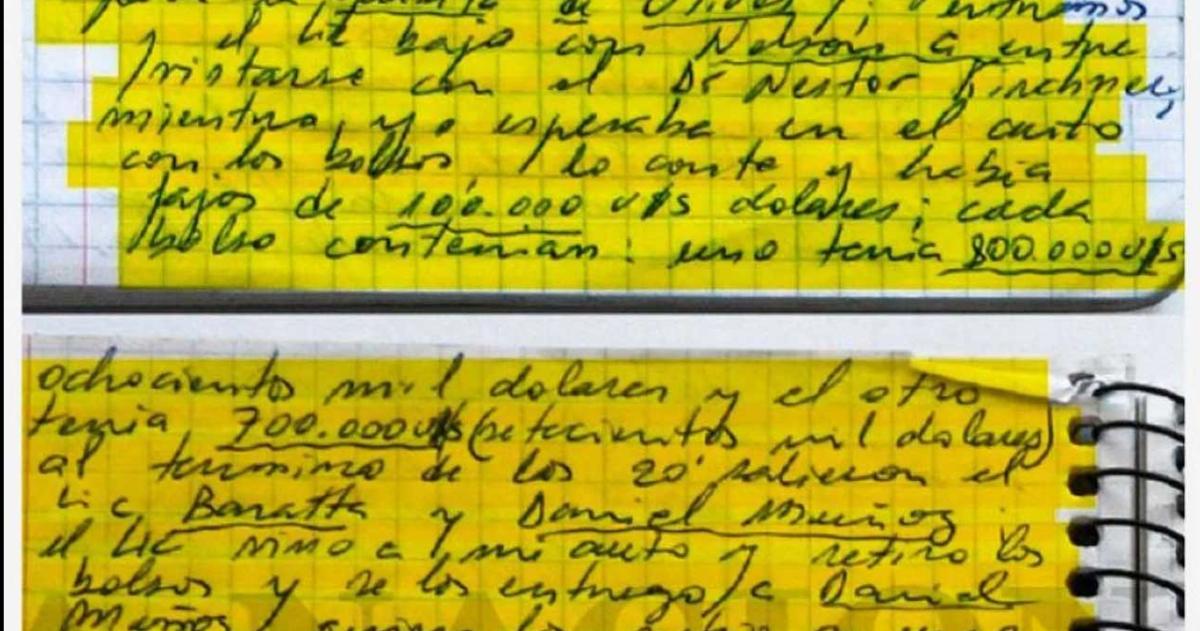 de Olivos
y el Lic bajo con Nelson a entre
/vistarse con el Dr Nestor Kirchner,
mientra, yo esperaba en el auto
con los bolsos, lo conte y habia
fajos de 100.000 U$S dolares; cada
bolso contenian: uno tenia 800.000 U$S
ochocientos mil dolares y el otro
tenia 700.000 U$S (setecientos mil dolares)
al termino de los 20' salieron el
Lic Baratta y Daniel Muñoz
el Lic vino a mi auto y retiro los
bolsos y se los entrego a Daniel
Muñoz